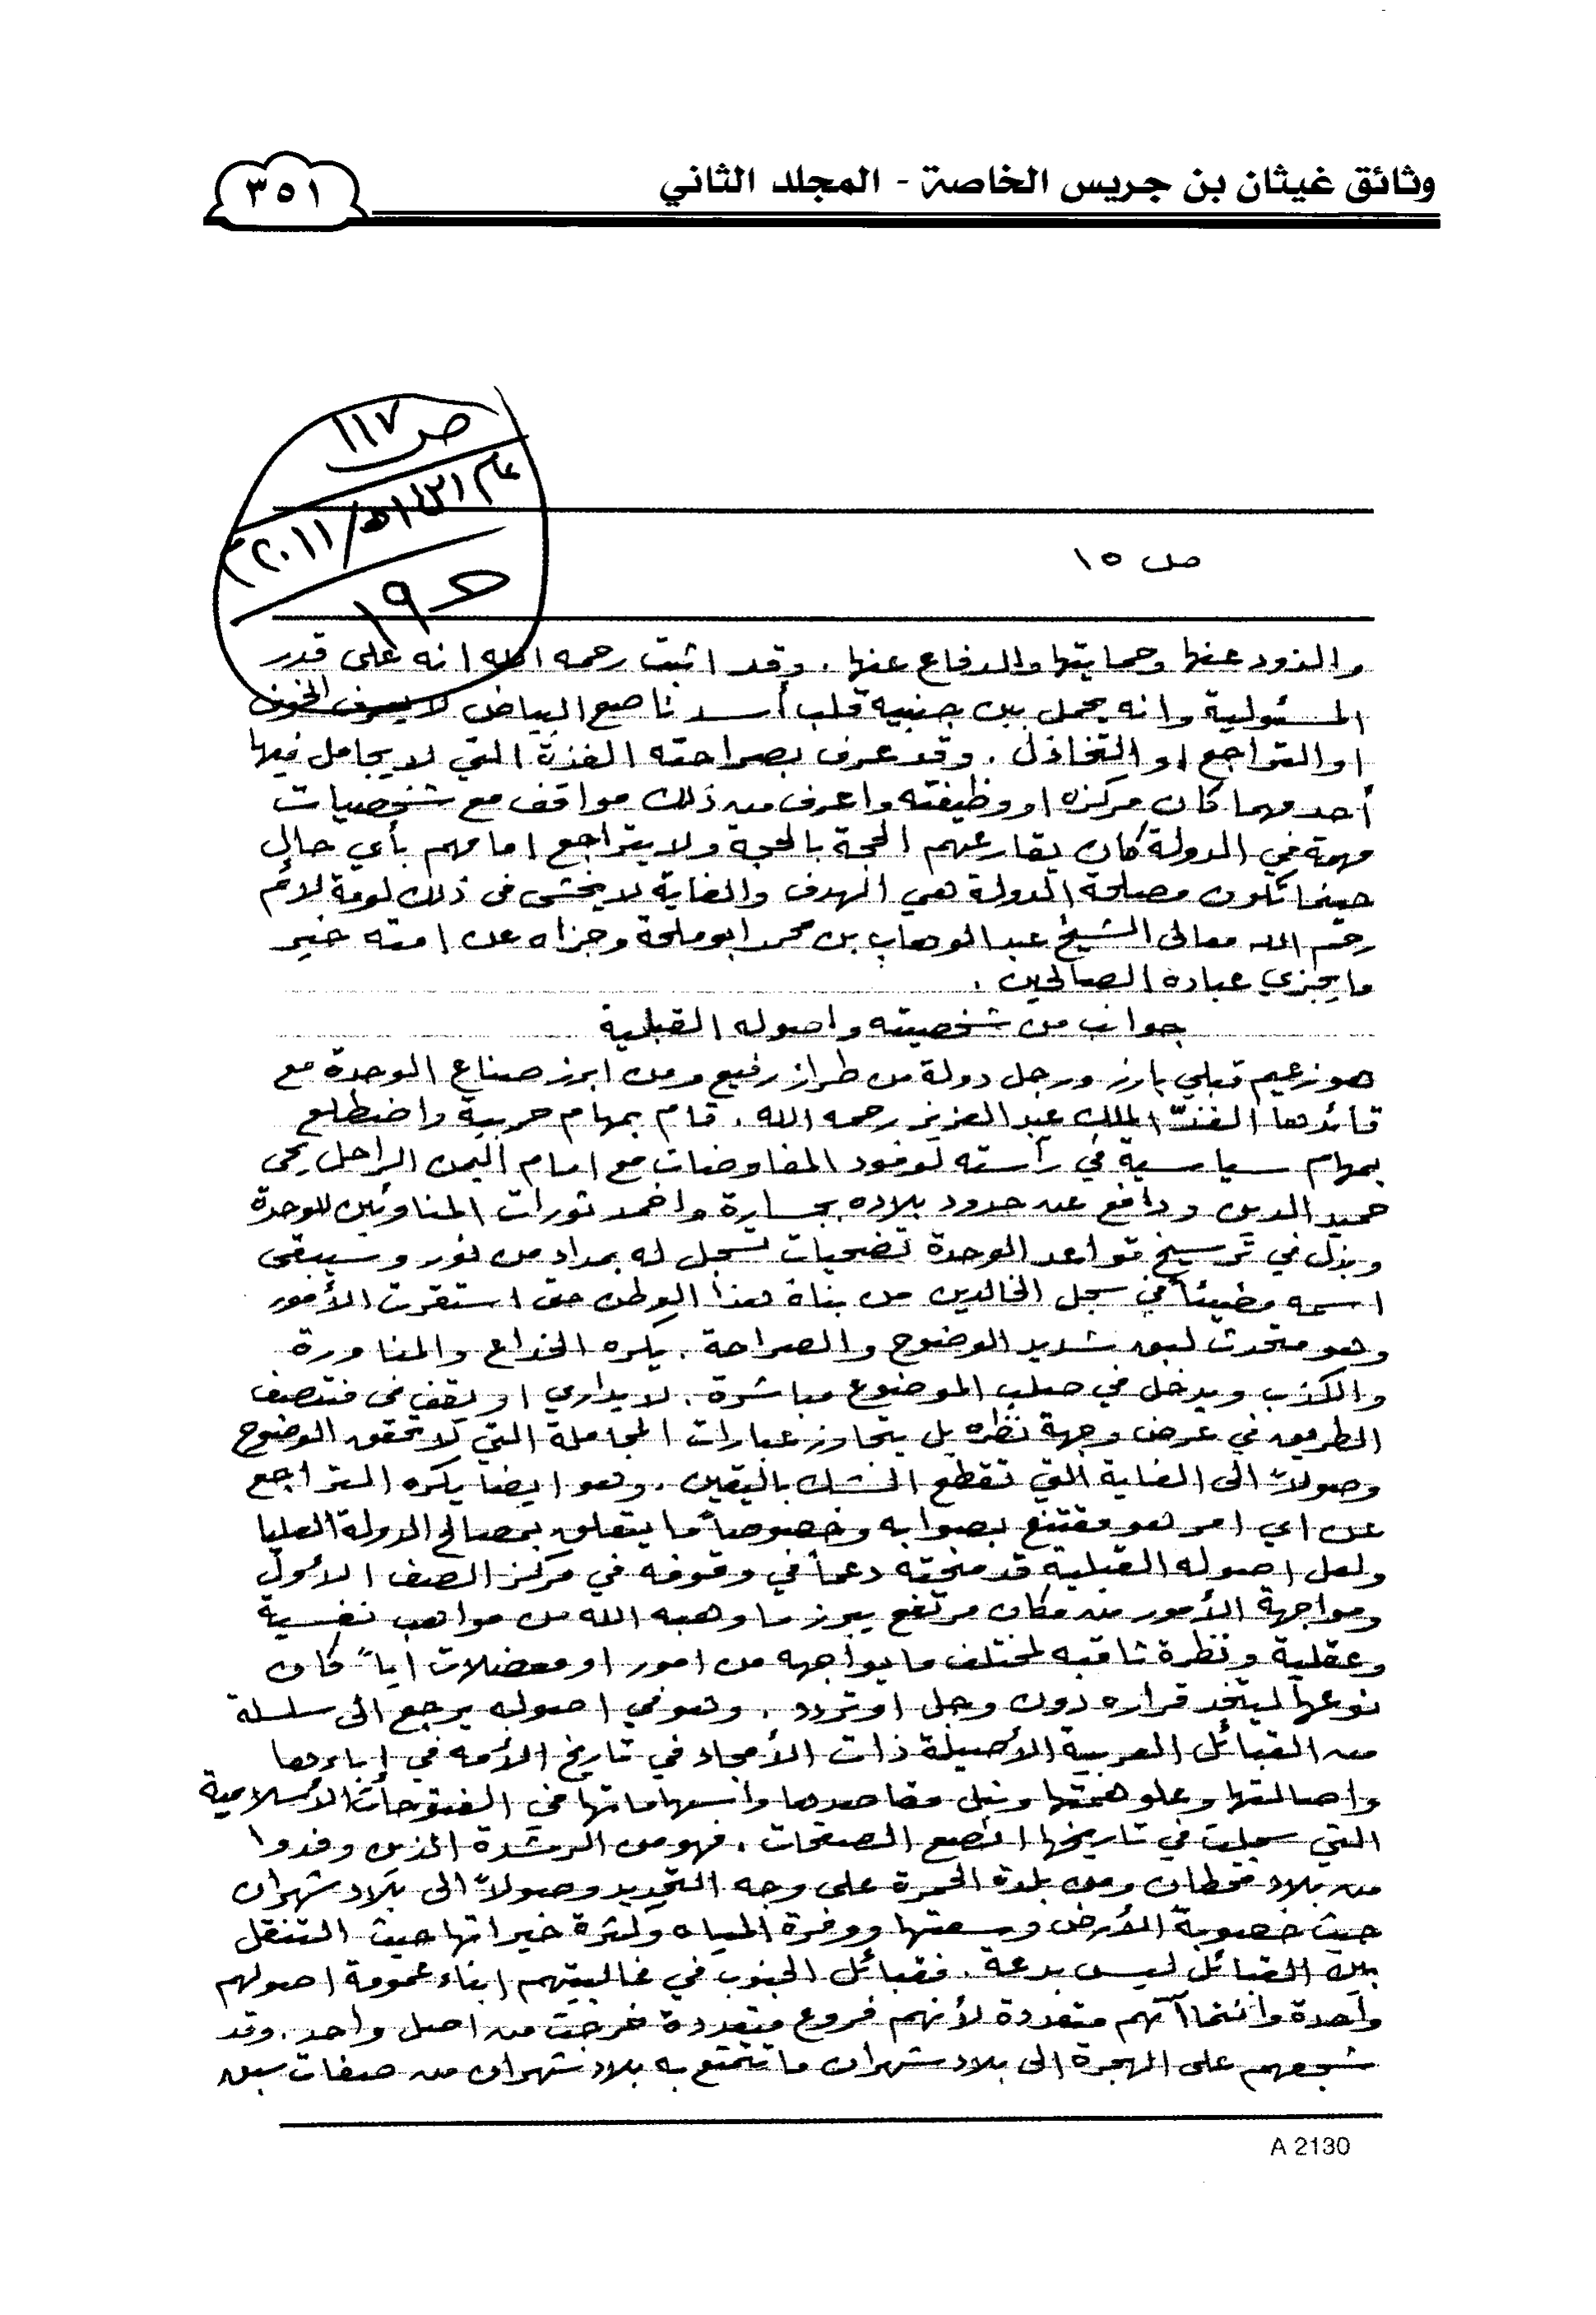 وثائق غيثان بن جريس الخاصة - المجلد الثاني
٣٥١
ص ١١٧
عام ١٤٣١هـ/٢٠١١م
ح ١٩
ص ١٥
والذود عنها وحمايتها والدفاع عنها . وقد اثبت رحمه الله انه على قدر
المسئولية وانه يحمل بين جنبيه قلب أسد ناصع البياض لا يعرف الخوف
او التراجع او التخاذل . وقد عرف بصراحته الفذة التي لا يجامل فيها
أحد مهما كان مركزه او وظيفته واعرف من ذلك مواقف مع شخصيات
مهمة في الدولة كان يقارعهم الحجة بالحجة ولا يتراجع امامهم بأي حال
حينما تكون مصلحة الدولة هي الهدف والغاية لا يخشى في ذلك لومة لائم
رحم الله معالي الشيخ عبد الوهاب بن محمد ابو ملحة وجزاه عن امته خير
ما يجزي عباده الصالحين .
جوانب من شخصيته واصوله القبلية
هو زعيم قبلي بارز ورجل دولة من طراز رفيع ومن ابرز صناع الوحدة مع
قائدها الفذّ الملك عبد العزيز رحمه الله . قام بمهام حربية واضطلع
بمهام سياسية في رأسته لوفود المفاوضات مع امام اليمن الراحل يحي
حميد الدين ودافع عن حدود بلاده بجسارة واخمد ثورات المناوئين للوحدة
وبذل في ترسيخ قواعد الوحدة تضحيات تسجل له بمداد من نور وسيبقى
اسمه مضيئاً في سجل الخالدين من بناة هذا الوطن حتى استقرت الأمور
وهو متحدث لبق شديد الوضوح والصراحة . يكره الخداع والمناورة
والكذب ويدخل في صلب الموضوع مباشرة . لا يداري او يقف في منتصف
الطريق في عرض وجهة نظره بل يتجاوز عبارات المجاملة التي لا تحقق الوضوح
وصولاً الى الغاية التي تقطع الشك باليقين . وهو ايضا يكره التراجع
عن اي امر هو مقتنع بصوابه وخصوصاً ما يتعلق بمصالح الدولة العليا
ولعل اصوله القبلية قد منحته دعماً في وقوفه في مركز الصف الأول
ومواجهة الأمور من مكان مرتفع يبرز ما وهبه الله من مواهب نفسية
وعقلية ونظرة ثاقبه لمختلف ما يواجهه من امور او معضلات اياً كان
نوعها ليتخذ قراره دون وجل او تردد . وهو في اصوله يرجع الى سلسلة
من القبائل العربية الأصيلة ذات الأمجاد في تاريخ الأمه في إباءها
واصالتها وعلو همتها ونبل مقاصدها واسهاماتها في الفتوحات الاسلامية
التي سجلت في تاريخها انصع الصفحات . فهو من الرشدة الذين وفدوا
من بلاد قحطان ومن بلدة الحمرة على وجه التحديد وصولاً الى بلاد شهران
حيث خصوبة الأرض وسعتها ووفرة المياه وكثرة خيراتها حيث التنقل
بين القبائل ليس بدعة . فقبائل الجنوب في غالبيتهم ابناء عمومة اصولهم
واحدة وانتماآتهم متعددة لأنهم فروع متعددة خرجت من اصل واحد . وقد
شجعهم على الهجرة الى بلاد شهران ما تتمتع به بلاد شهران من صفات سبق
A 2130